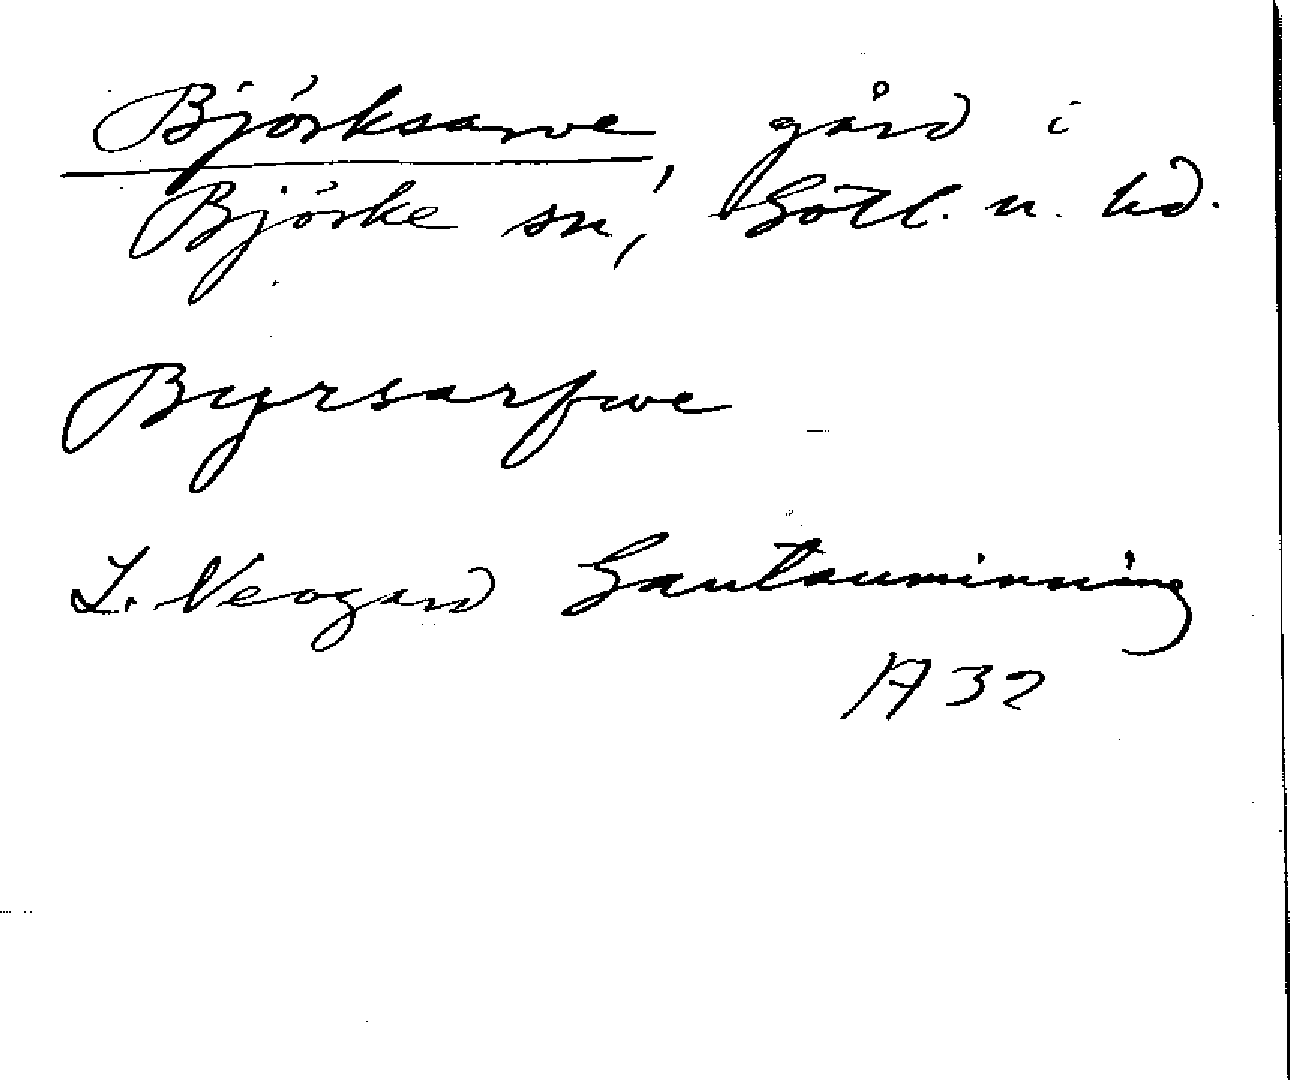 Björksarve, gård i
Björke sn, Gotl. n. hd.
Byrsarfwe
L. Neogard Gautauminning
1732